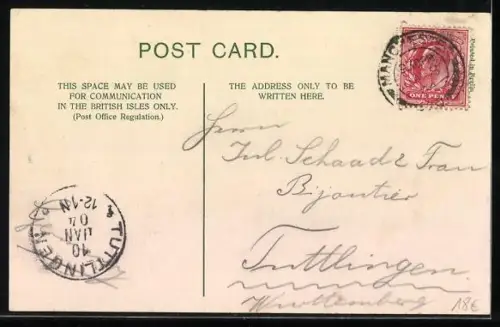 POST CARD.
THIS SPACE MAY BE USED
FOR COMMUNICATION
IN THE BRITISH ISLES ONLY.
(Post Office Regulation.)
THE ADDRESS ONLY TO BE
WRITTEN HERE.
ONE PENNY
Herrn
Jul. Schaad & Frau
Bijoutier
Tuttlingen
Württemberg
TUTTLINGEN
10
JAN
04
12-1N
18€